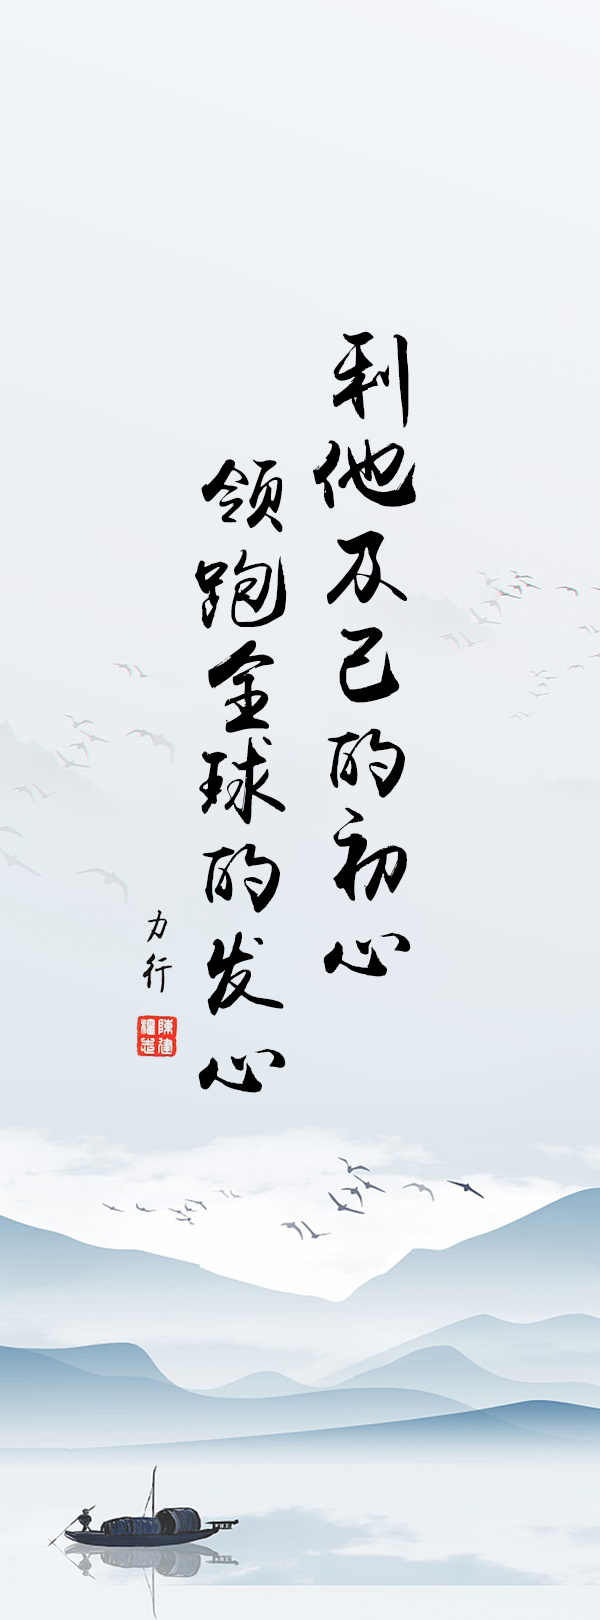 利他及己的初心
领跑全球的发心
力行